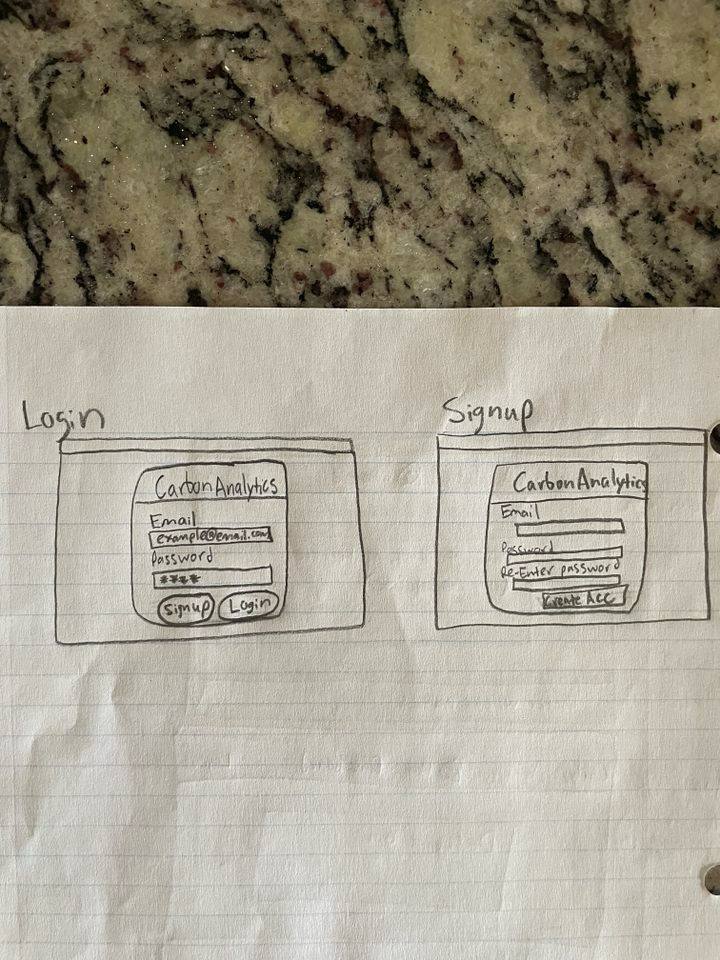 Login
CarbonAnalytics
Email
example@email.com
Password
****
Signup Login
Signup
CarbonAnalytics
Email
Password
Re-Enter password
Create Acc